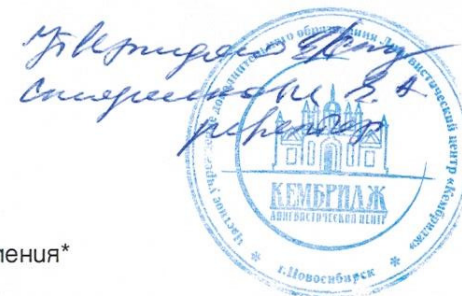 Утверждаю
директор
Частное учреждение дополнительного образования Лингвистический центр «Кембридж»
КЕМБРИДЖ
ЛИНГВИСТИЧЕСКИЙ ЦЕНТР
* г.Новосибирск *
ления*